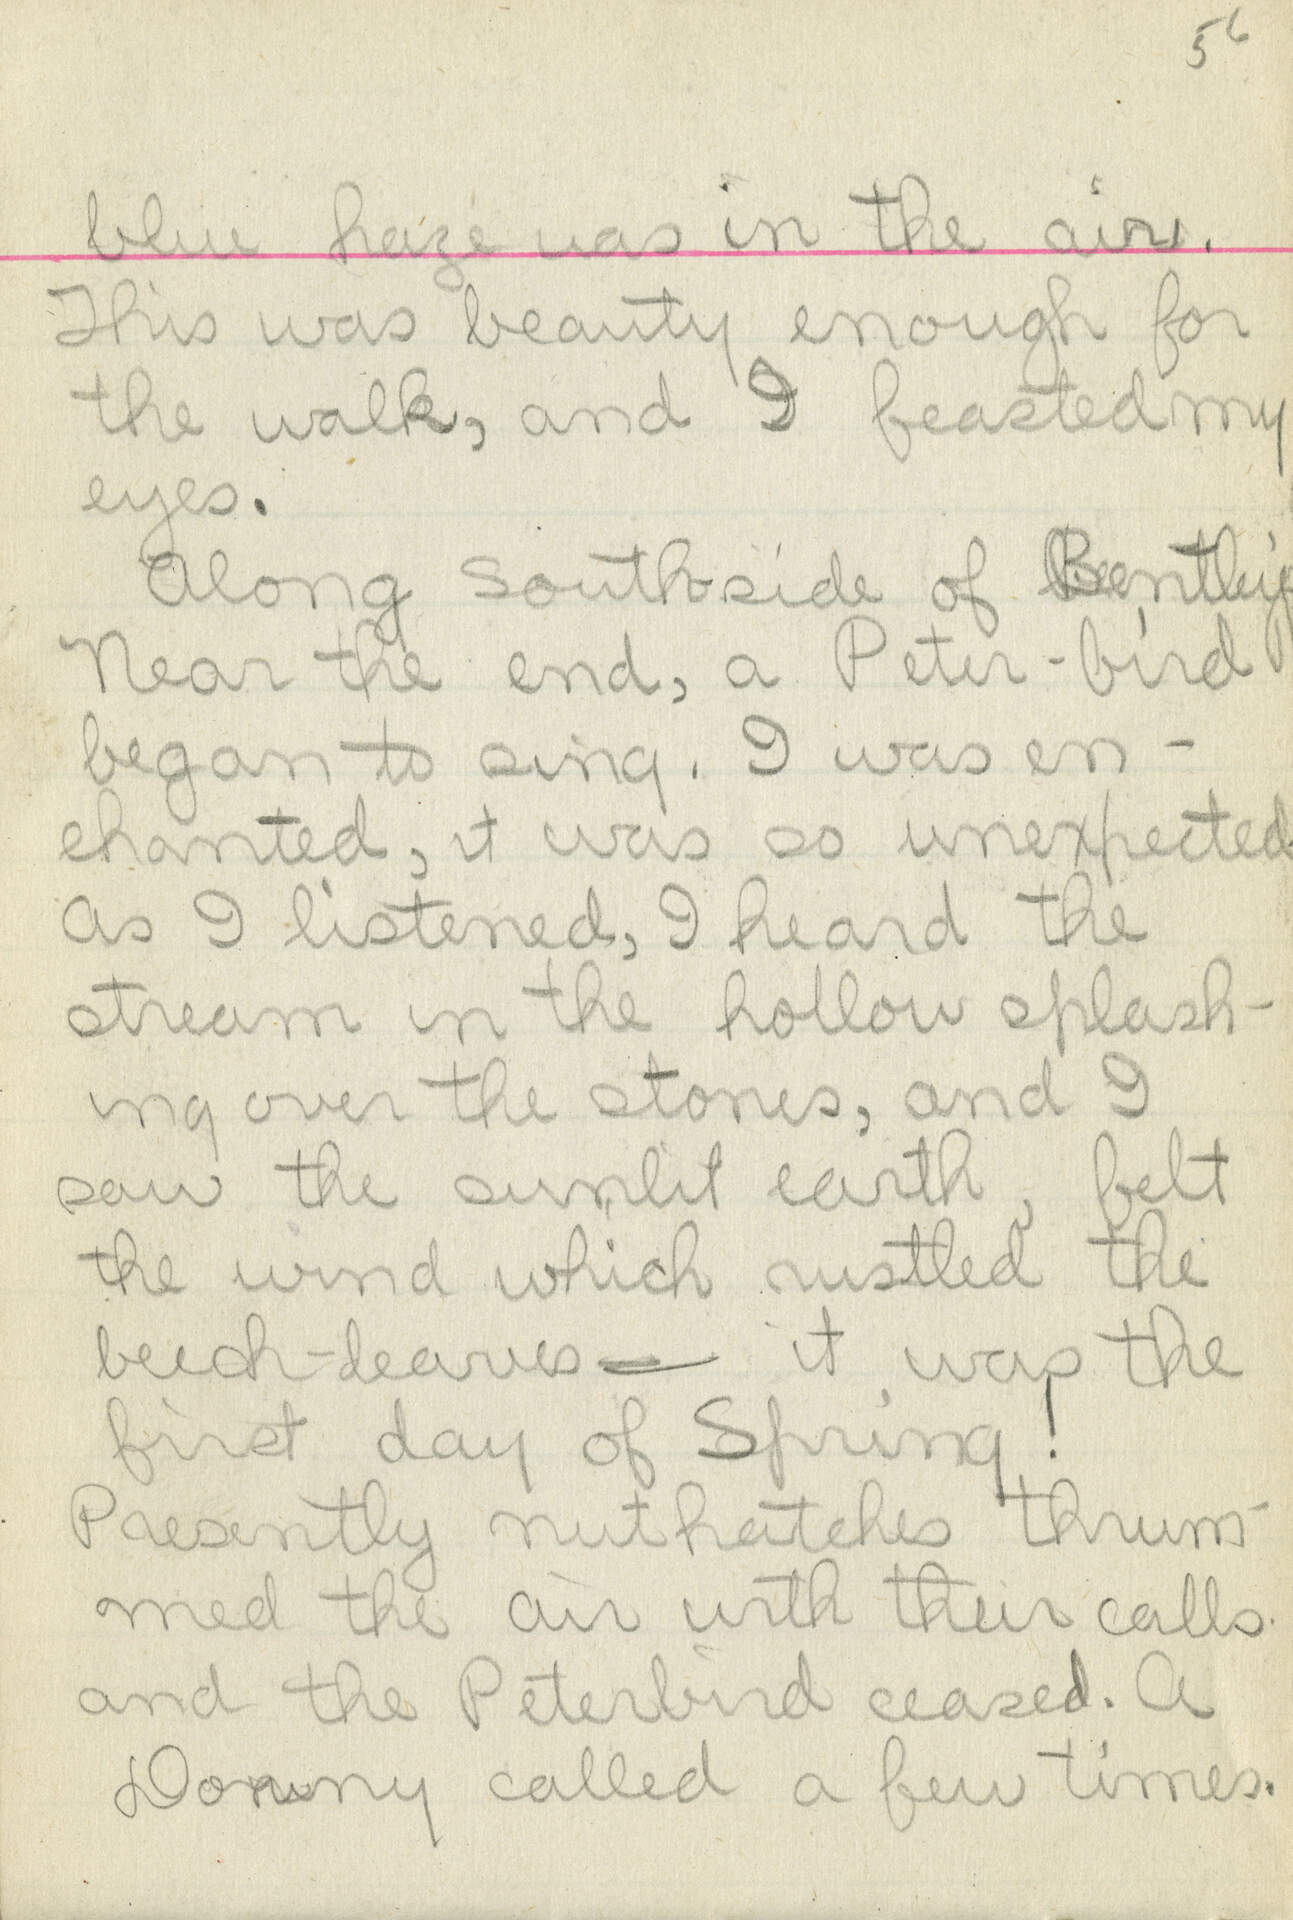 56
blue haze was in the air.
This was beauty enough for
the walk, and I feasted my
eyes.
Along south-side of Bentley
Near the end, a Peter-bird
began to sing. I was en-
chanted, it was so unexpected
As I listened, I heard the
stream in the hollow splash-
ing over the stones, and I
saw the sunlit earth, felt
the wind which rustled the
beech-leaves — it was the
first day of Spring!
Presently nuthatches thrum-
med the air with their calls.
and the Peterbird ceased. A
Downy called a few times.